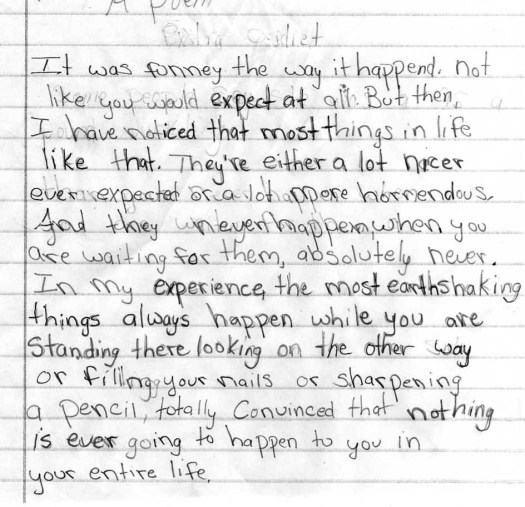 A Poem
It was funney the way it happend. not
like you would expect at all. But then,
I have noticed that most things in life
like that. They're either a lot nicer
ever expected or a lot more horrendous.
And they never happen, when you
are waiting for them, absolutely never.
In my experience, the most earthshaking
things always happen while you are
Standing there looking on the other way
or filing your nails or sharpening
a pencil, totally Convinced that nothing
is ever going to happen to you in
your entire life.